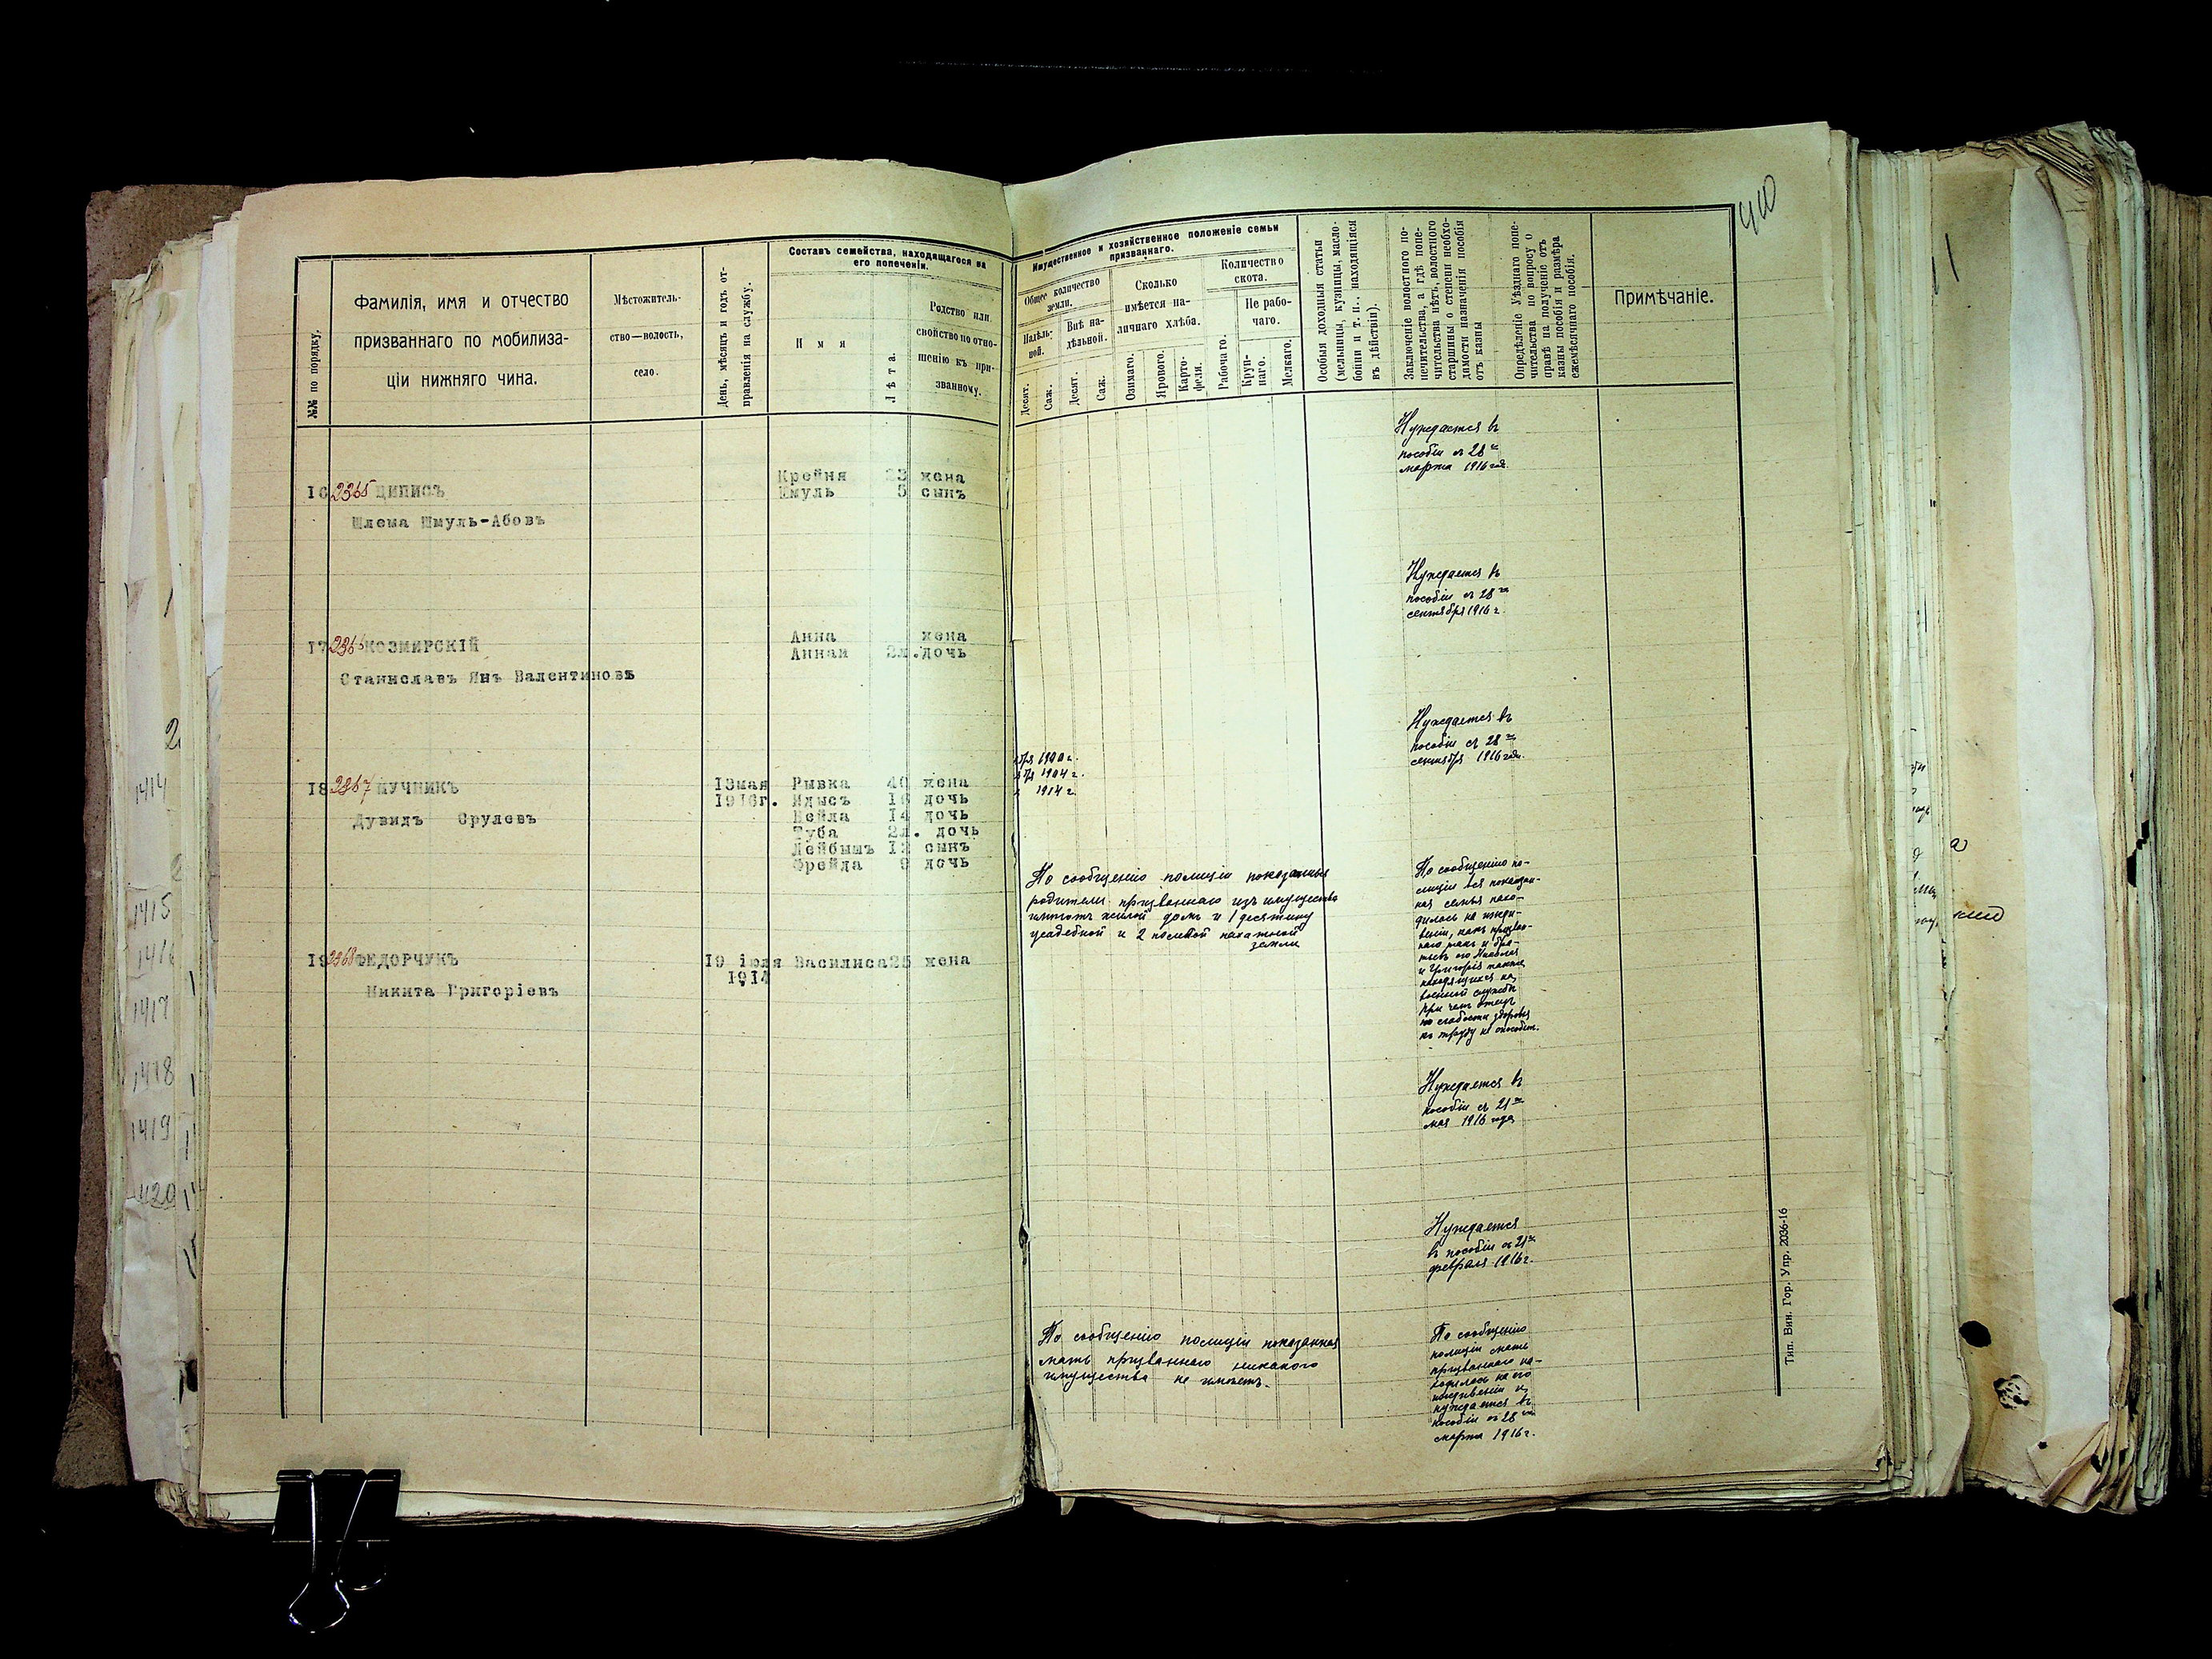 440
№№ по порядку.
Фамилія, имя и отчество
призваннаго по мобилиза-
ціи нижняго чина.
Мѣстожитель-
ство—волость,
село.
День, мѣсяцъ и годъ от-
правленія на службу.
Составъ семейства, находящагося на
его попеченіи.
Имя
Лѣта.
Родство или
свойство по отно-
шенію къ при-
званному.
16 2365 ЦИПИСЪ
Шлема Шмуль-Абовъ
Крейня 23 жена
Шмуль 5 сынъ
17 2366 КОЗМИРСКІЙ
Станиславъ Янъ Валентиновъ
Анна жена
Аннаи 2л. дочь
18 2367 МУЧНИКЪ
Дувидъ Срулевъ
13 мая
1916г.
Рывка 40 жена
Идысъ 16 дочь
Бейла 14 дочь
Туба 2л. дочь
Лейбышъ 12 сынъ
Фрейда 9 дочь
19 2368 ФЕДОРЧУКЪ
Никита Григоріевъ
19 іюля
1914
Василиса 25 жена
Имущественное и хозяйственное положеніе семьи
призваннаго.
Общее количество
земли.
Надѣль-
ной.
Внѣ на-
дѣльной.
Десят.
Саж.
Десят.
Саж.
Сколько
имѣется на-
личнаго хлѣба.
Озимаго.
Яроваго.
Карто-
феля.
Количество
скота.
Рабочаго.
Не рабо-
чаго.
Круп-
наго.
Мелкаго.
Особыя доходныя статьи
(мельницы, кузницы, масло-
бойни и т. п., находящіяся
въ дѣйствіи).
Заключеніе волостного по-
печительства, а гдѣ попе-
чительства нѣтъ, волостного
старшины о степени необхо-
димости назначенія пособія
отъ казны
Опредѣленіе Уѣзднаго попе-
чительства по вопросу о
правѣ на полученіе отъ
казны пособія и размѣра
ежемѣсячнаго пособія.
Примѣчаніе.
Нуждается въ
пособіи съ 28го
марта 1916 года
Нуждается въ
пособіи съ 28го
сентября 1916 г.
Нуждается въ
пособіи съ 28го
сентября 1916 года.
1900 г.
1904 г.
1914 г.
По сообщенію полиціи показанные
родители призваннаго изъ имущества
имѣютъ жилой домъ и 1 десятину
усадебной и 2 полевой пахатной
земли
По сообщенію по-
лиціи вся показан-
ная семья нахо-
дилась на ижди-
веніи, какъ призван-
наго такъ и бра-
тьевъ его Николая
и Григорія также
находящихся на
военной службѣ
при чемъ отецъ
по слабости здоровья
къ труду не способенъ.
Нуждается въ
пособіи съ 21го
мая 1916 года
Нуждается
въ пособіи съ 21го
февраля 1916 г.
По сообщенію полиціи показанная
мать призваннаго никакого
имущества не имѣетъ.
По сообщенію
полиціи мать
призваннаго на-
ходилась на его
иждивеніи и
нуждается въ
пособіи съ 28го
марта 1916 г.
Тип. Вин. Гор. Упр. 2036-16
1414
1415
1416
1417
1418
1419
1420